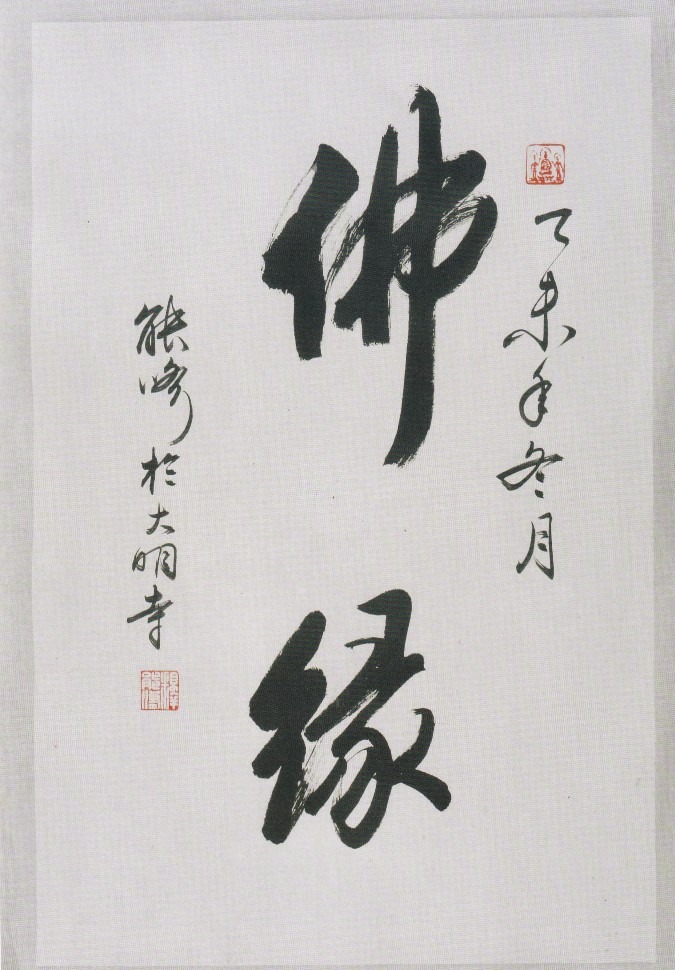 乙未年冬月
佛缘
能修於大明寺